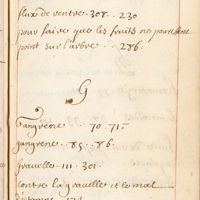 flux de ventre. 308. 230
pour faire que les fruits ne pourissent
point sur l'arbre .. 286.
G
Gangrene .. 70. 71.
gangrene .. 85. 86.
gravelle. 111. 301.
contre la gravelle et le mal